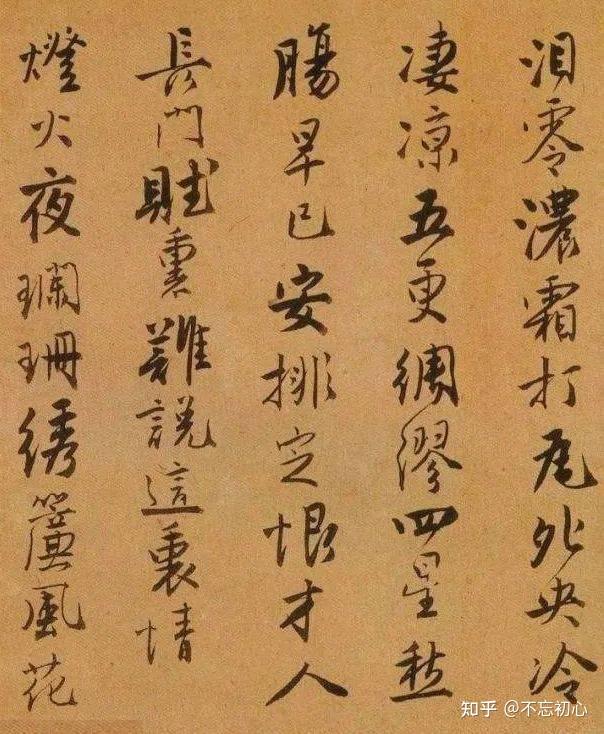 泪零濃霜打瓦夗央冷
凄凉五更綢繆四星愁
腸早已安排定恨才人
長門賦裏難説這裏情
燈火夜瓓珊綉簾風花
知乎 @不忘初心